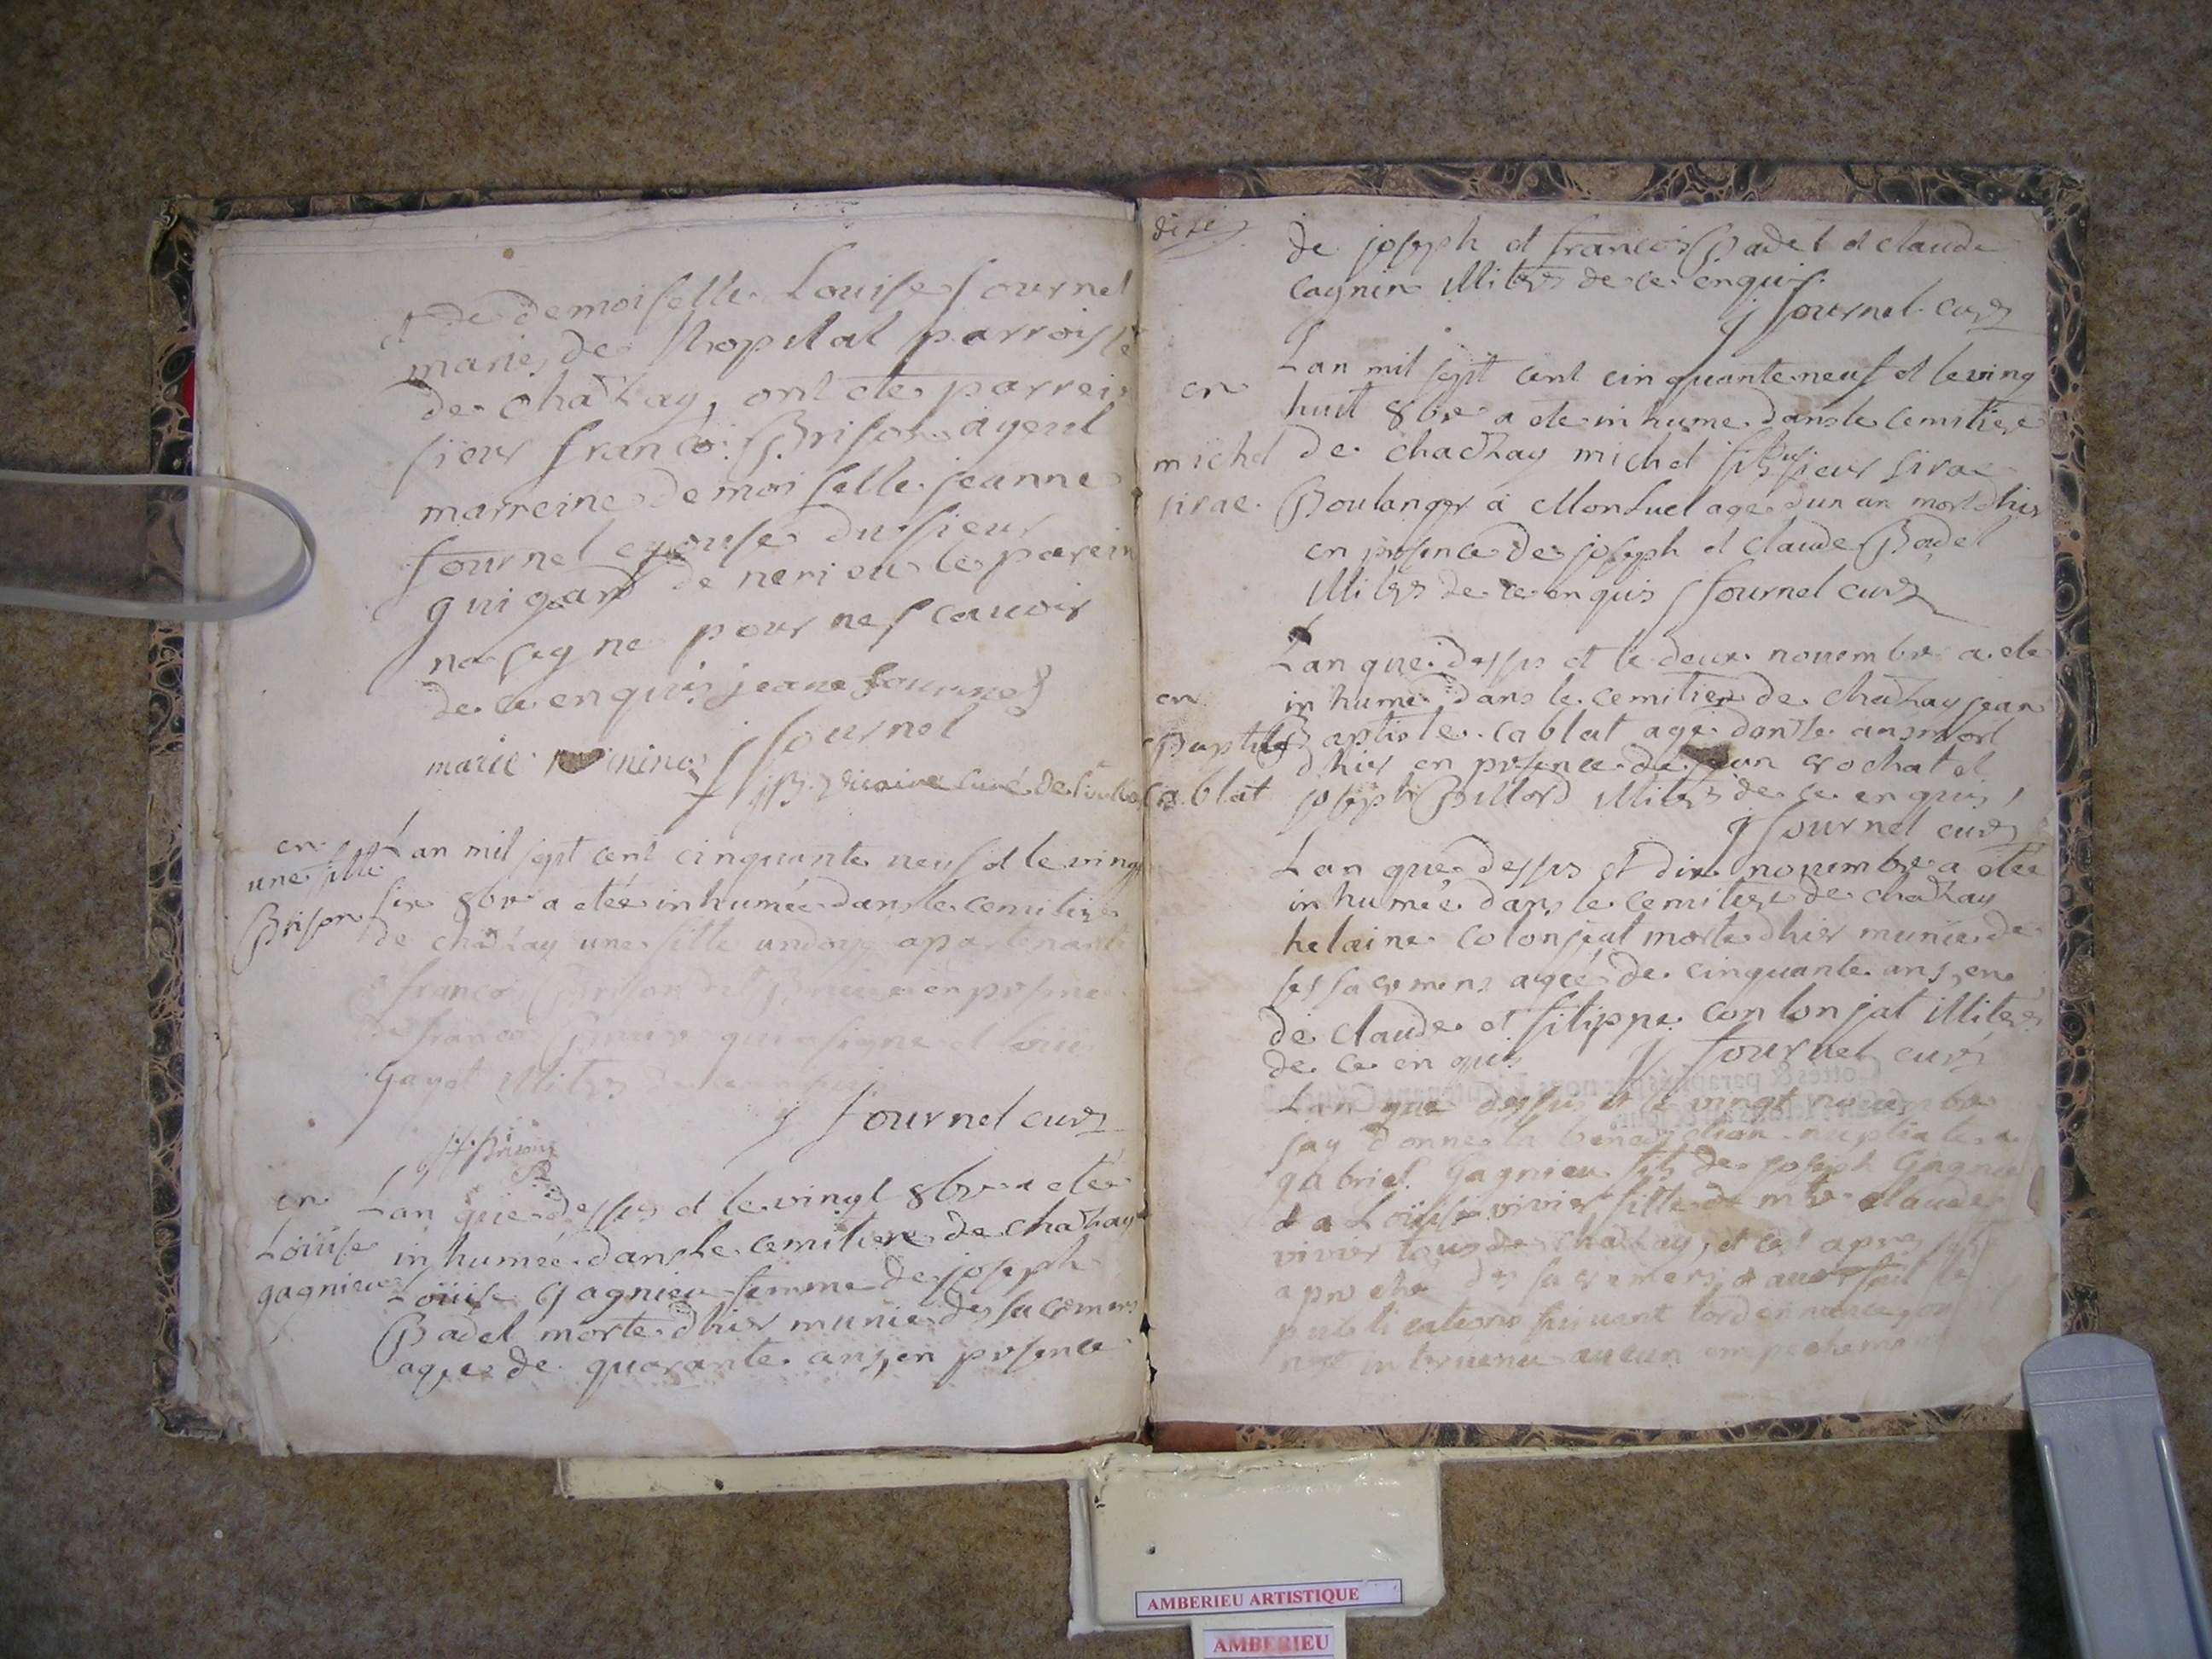 et de demoiselle Louise fournel
mariés de lhopital parroisse
de chaZay, ont ete parrein
sieur francois Brison ayeul
marreine demoiselle jeanne
fournel epouse du sieur
guigard de nerieu le parein
na signe pour ne scauoir
de ce enquis jeane fournel
marie
fournel
curé de
en
une fille
Brison
Lan mil sept cent cinquante neuf et le vingt
six 8bre a etée inhumée dans le cemitire
de chaZay une fille undoyé apartenante
a francois Brison dit en presence
de francois qui a signe et
gayet illitrés de ce enquis
j fournel curé
Brison
en
Loüise
gagnieu
Lan que dessus et le vingt 8bre a etée
inhumée dans le cemitiere de chaZay
Loüise gagnieu femme de joseph
Badel morte dhier munie des sacremens
agee de quarante ans, en presence
dixé
de joseph et francois Badel et claude
cagnin illitrés de ce enquis.
j fournel curé
en
michel
sirae
Lan mil sept cent cinquante neuf et le ving
huit 8bre a ete inhume dans le cemitiere
de chaZay michel fils du sieur sirae
Boulanger a Monluel age dun an mort dhier
en presence de joseph et claude Badel
illitrés de ce enquis j fournel curé
en
Baptiste
cablat
Lan que dessus et le deux nouembre a ete
inhume dans le cemitiere de chaZay jean
Baptiste cablat age donZe ans mort
dhier en presence de jean crochat et
joseph Billord illitrés de ce enquis,
j fournel curé
Lan que dessus et dix nouembre a etée
inhumée dans le cemitiere de chaZay
helaine colonjat morte dhier munie de
ses sacremens agée de cinquante ans, en
de claude et filippe conlonjat illitrés
de ce enquis j fournel curé
Lan que dessus et le vingt nouembre
jay donne la benediction nuptiale a
gabriel Gagnieu fils de joseph Gagnieu
et a Loüise vivier fille de mtre claude
vivier tous de chaZay, et ce apres
aproché des sacremens, et auoir fait
publications suiuant lordonnance,
nest interuenu aucun empechement
AMBERIEU ARTISTIQUE
AMBERIEU